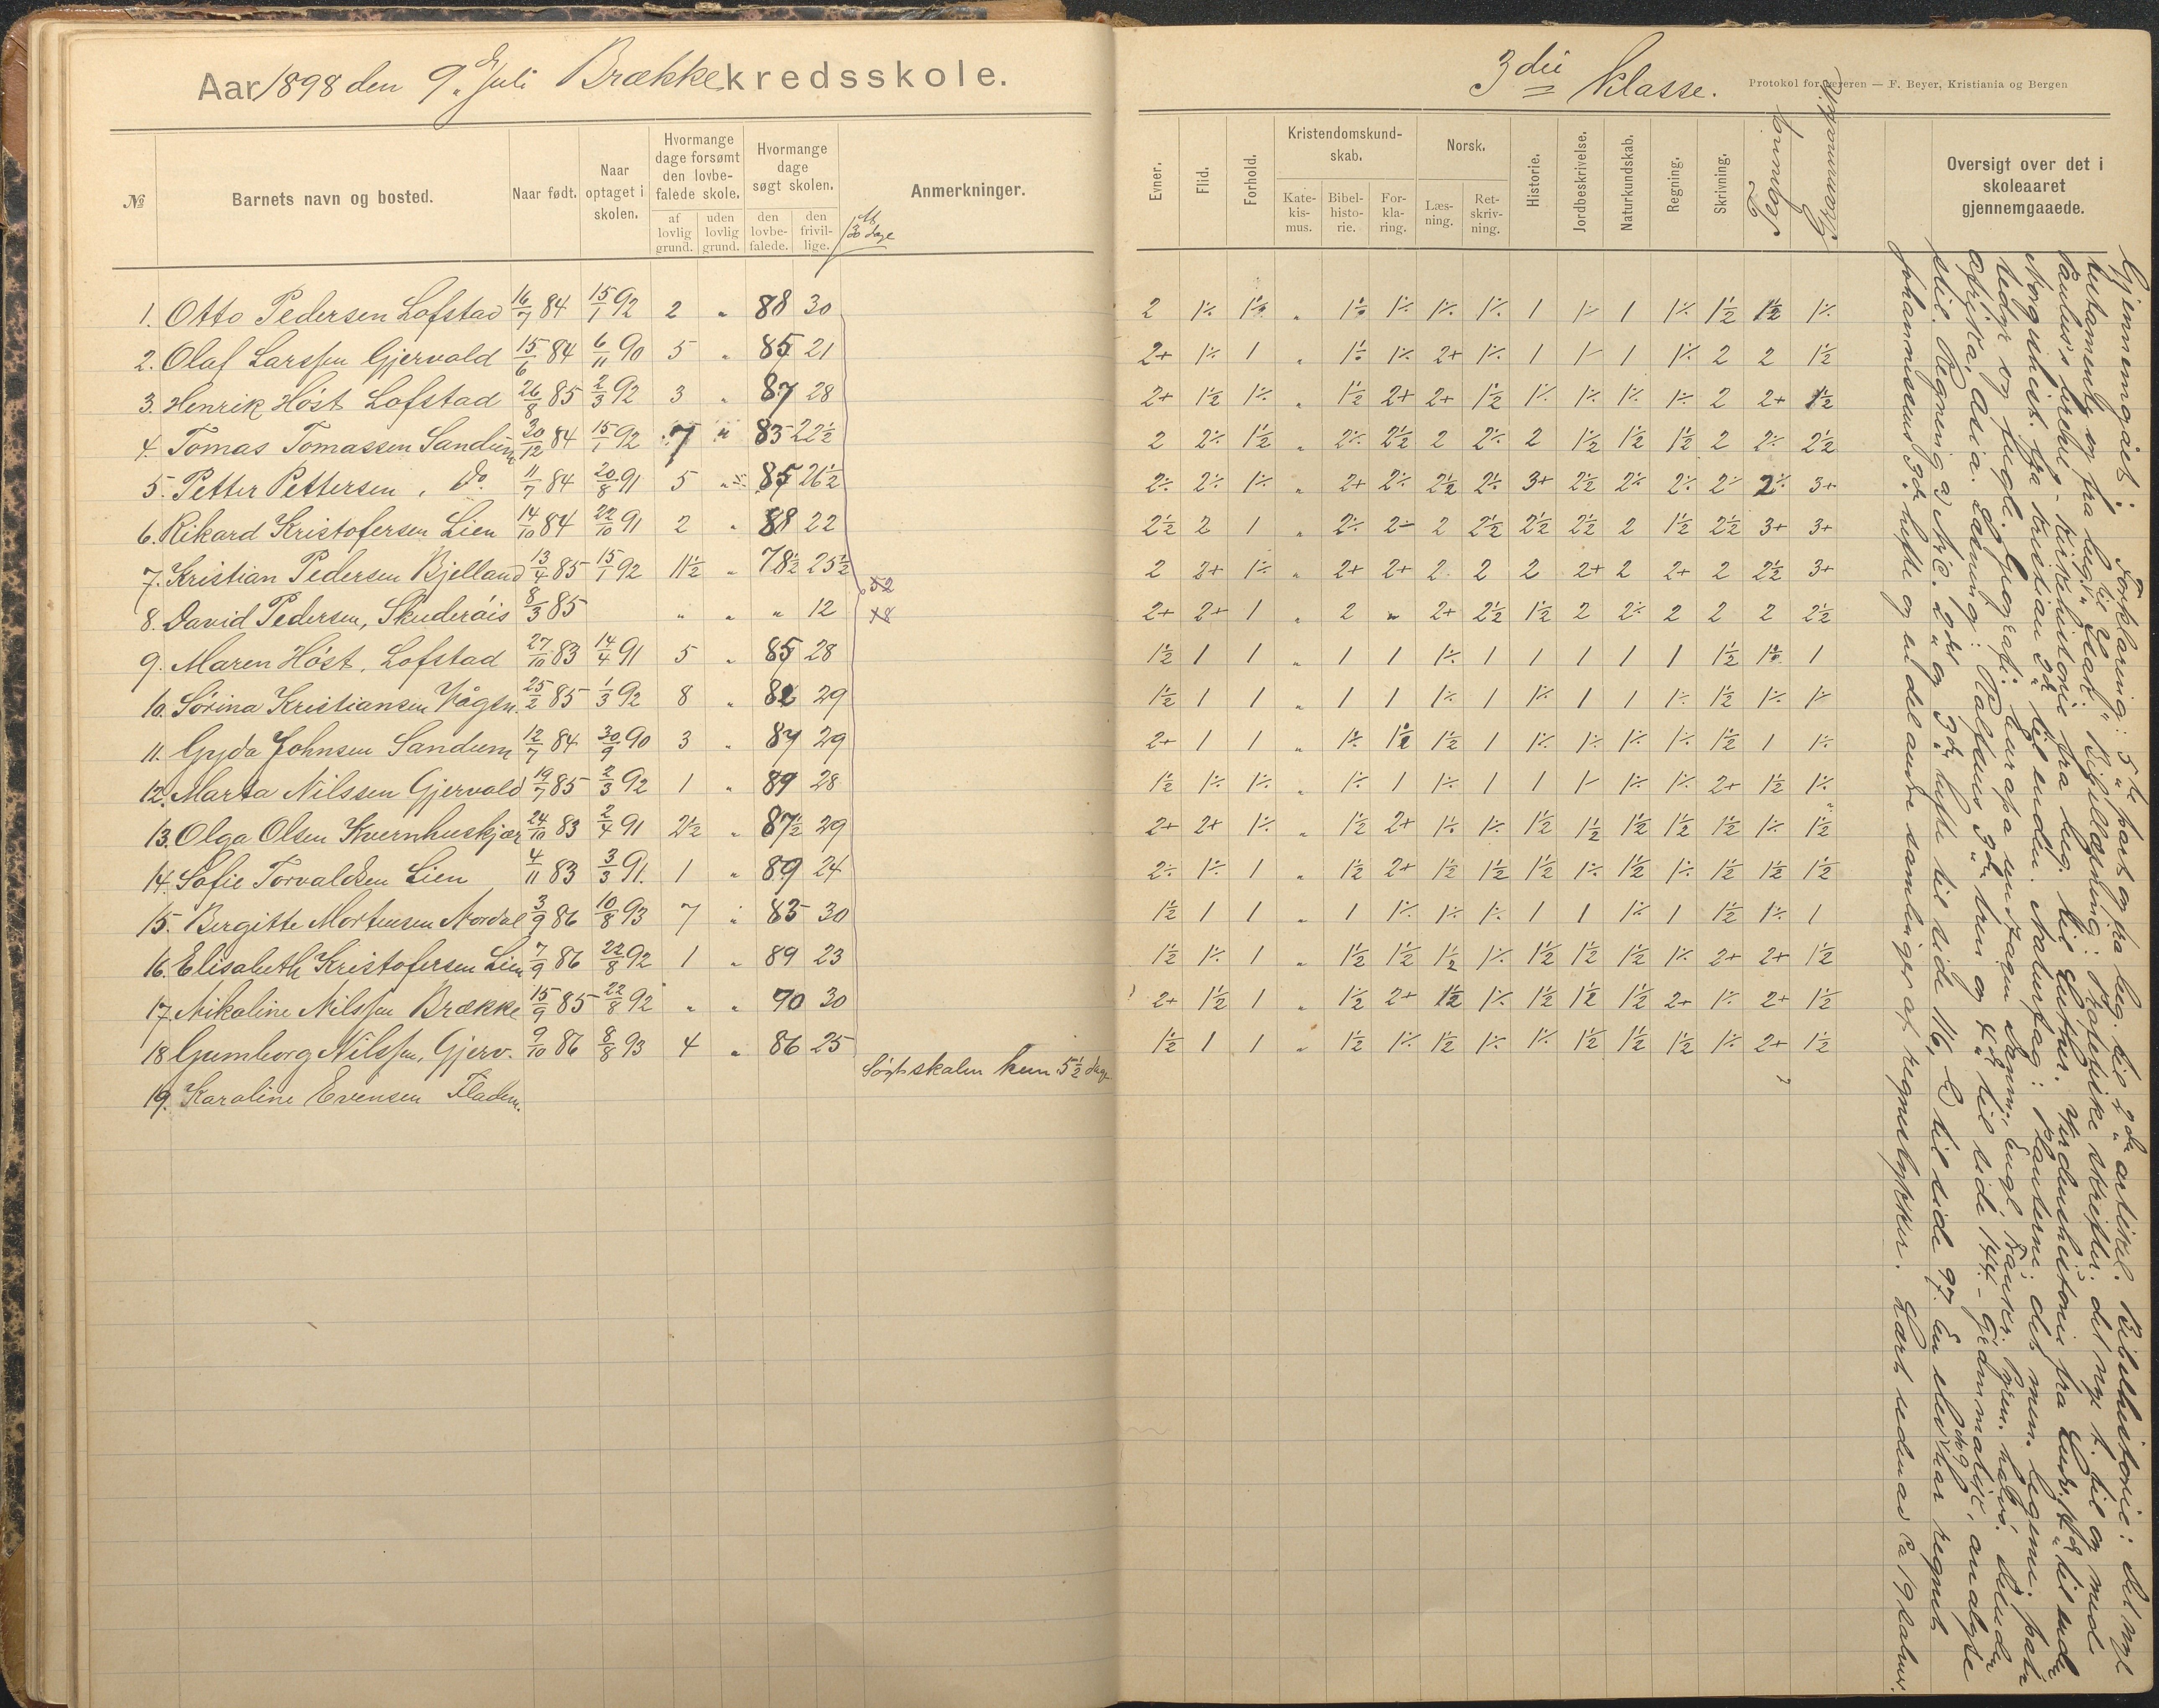 Aar 1898 den 9. Juli Brække kredsskole.
№
Barnets navn og bosted.
Naar født.
Naar optaget i skolen.
Hvormange dage forsømt den lovbefalede skole.
af lovlig grund.
uden lovlig grund.
Hvormange dage søgt skolen.
den lovbefalede.
den frivillige.
30 dage
Anmerkninger.
1. Otto Pedersen Lofstad 16/7 84 15/1 92 2 " 88 30
2. Olaf Larssen Gjervold 15/6 84 6/11 90 5 " 85 21
3. Henrik Høst Lofstad 26/8 85 2/3 92 3 " 87 28
4. Tomas Tomassen Sandum 30/12 84 15/1 92 7 " 83 22½
5. Petter Pettersen, Do. 11/7 84 20/8 91 5 " 85 26½
6. Rikard Kristofersen Lien 14/10 84 22/10 91 2 " 88 22
7. Kristian Pedersen Bjelland 13/4 85 15/1 92 11½ " 78½ 25½
8. David Pedersen, Skuderøis 8/3 85 " " " 12
9. Maren Høst, Lofstad 27/10 83 14/4 91 5 " 85 28
10. Sørina Kristiansen Vågsn. 25/2 85 1/3 92 8 " 82 29
11. Gyda Johnsen Sandum 12/7 84 30/9 90 3 " 87 29
12. Marta Nilssen Gjervold 19/7 85 2/3 92 1 " 89 28
13. Olga Olsen Kvernhuskjær 24/10 83 2/4 91 2½ " 87½ 29
14. Sofie Torvaldsen Lien 4/11 83 3/3 91. 1 " 89 24
15. Bergitte Mortensen Nordal 3/9 86 10/8 93 7 " 83 30
16. Elisabeth Kristofersen Lien 7/9 86 22/8 92 1 " 89 23
17. Nikoline Nilssen Brække 15/9 85 22/8 92 " " 90 30
18 Gumborg Nilssen, Gjerv. 9/10 86 8/8 93 4 " 86 25
19. Karoline Evensen Fladen. Søgt skolen kun 5½ dage
3die Klasse.
Protokol for læreren — F. Beyer, Kristiania og Bergen
Evner.
Flid.
Forhold.
Kristendomskundskab.
Katekismus.
Bibelhistorie.
Forklaring.
Norsk.
Læsning.
Retskrivning.
Historie.
Jordbeskrivelse.
Naturkundskab.
Regning.
Skrivning.
Oversigt over det i skoleaaret gjennemgaaede.
2 1÷ 1÷ " 1÷ 1÷ 1÷ 1÷ 1 1÷ 1 1÷ 1½ 1½ 1÷
2+ 1÷ 1 " 1÷ 1÷ 2+ 1÷ 1 1÷ 1 1÷ 2 2 1½
2+ 1½ 1÷ " 1½ 2+ 2+ 1½ 1÷ 1÷ 1÷ 1÷ 2 2+ 1½
2 2÷ 1½ " 2÷ 2½ 2 2÷ 2 1½ 1½ 1½ 2 2÷ 2½
2÷ 2÷ 1÷ " 2+ 2÷ 2½ 2÷ 3+ 2½ 2÷ 2÷ 2÷ 2÷ 3+
2½ 2 1 " 2÷ 2÷ 2 2½ 2½ 2½ 2 1½ 2½ 3+ 3+
2 2+ 1÷ " 2+ 2+ 2 2 2 2+ 2 2+ 2 2½ 3+
2+ 2+ 1 " 2 " 2+ 2½ 1½ 2 2÷ 2 2 2 2½
1½ 1 1 " 1 1 1÷ 1 1 1 1 1 1½ 1÷ 1
1½ 1 1 " 1 1 1÷ 1 1÷ 1 1 1÷ 1½ 1÷ 1÷
2+ 1 1 " 1÷ 1½ 1½ 1 1÷ 1÷ 1÷ 1÷ 1½ 1 1÷
1½ 1÷ 1÷ " 1÷ 1 1÷ 1 1 1÷ 1÷ 1÷ 2+ 1½ 1÷
2+ 2+ 1÷ " 1½ 2+ 1÷ 1÷ 1½ 1½ 1½ 1½ 1½ 1÷ 1½
2÷ 1÷ 1 " 1½ 2+ 1½ 1½ 1½ 1÷ 1½ 1÷ 1½ 1½ 1½
1½ 1 1 " 1 1÷ 1÷ 1÷ 1 1 1÷ 1 1½ 1÷ 1
1½ 1÷ 1 " 1½ 1½ 1½ 1÷ 1½ 1½ 1½ 1÷ 2+ 2+ 1½
2+ 1½ 1 " 1½ 2+ 1½ 1÷ 1½ 1½ 1½ 2+ 1÷ 2+ 1½
1½ 1 1 " 1½ 1÷ 1½ 1÷ 1÷ 1½ 1½ 1½ 1÷ 2+ 1½
Gjennemgået: Forklaring: 5te part og fra beg. til 2den artikel. Bibelhistorie: Det nye
testamente og fra beg. til "Esak". Bibellæsning: Poetiske skrifter. det nye t. til og med
Paulus's breve. - Kirkehistorie fra beg. til Luther. Verdenshistorie fra
Norgeshist. fra Kristian 3die til enden. Naturfag: Planterne; det men. legeme; patte-
dyr og fugle. Geografi: Europa
afrika, asia. Læsning: Rolfsens 3die trin og 4de til side 144. - Grammatik, analyse
stil. Regning a Nic. 2det og 3die hefte til side 116, C til side 97. En elev har regnet
Johannessens 3die hefte og en del andre samlinger af regnestykker. Lært udenad ca 19 salmer.